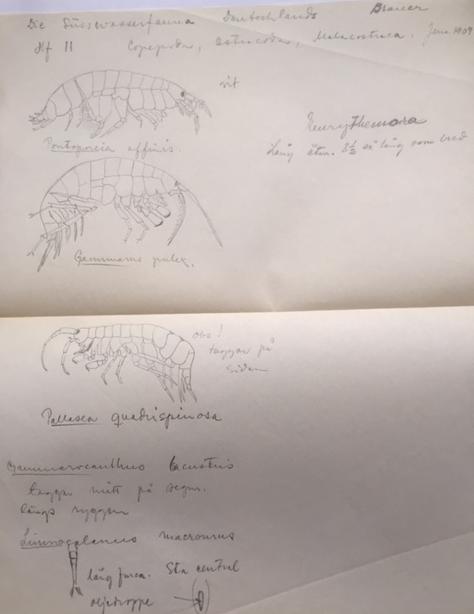 Die Süsswasserfauna Deutschlands Brauer
Hf 11 Copepoda, Ostracoda, Malacostraca. Jena 1909
vit
Pontoporeia affinis.
Eurythemora
Lång 8½ så lång som bred
Gammarus pulex.
Obs!
taggar på
sidan
Pallasea quadrispinosa
Gammarocanthus lacustris
taggar mitt på segm.
längs ryggen
Limnocalanus macrurus
lång furca. Sta central
oljedroppe